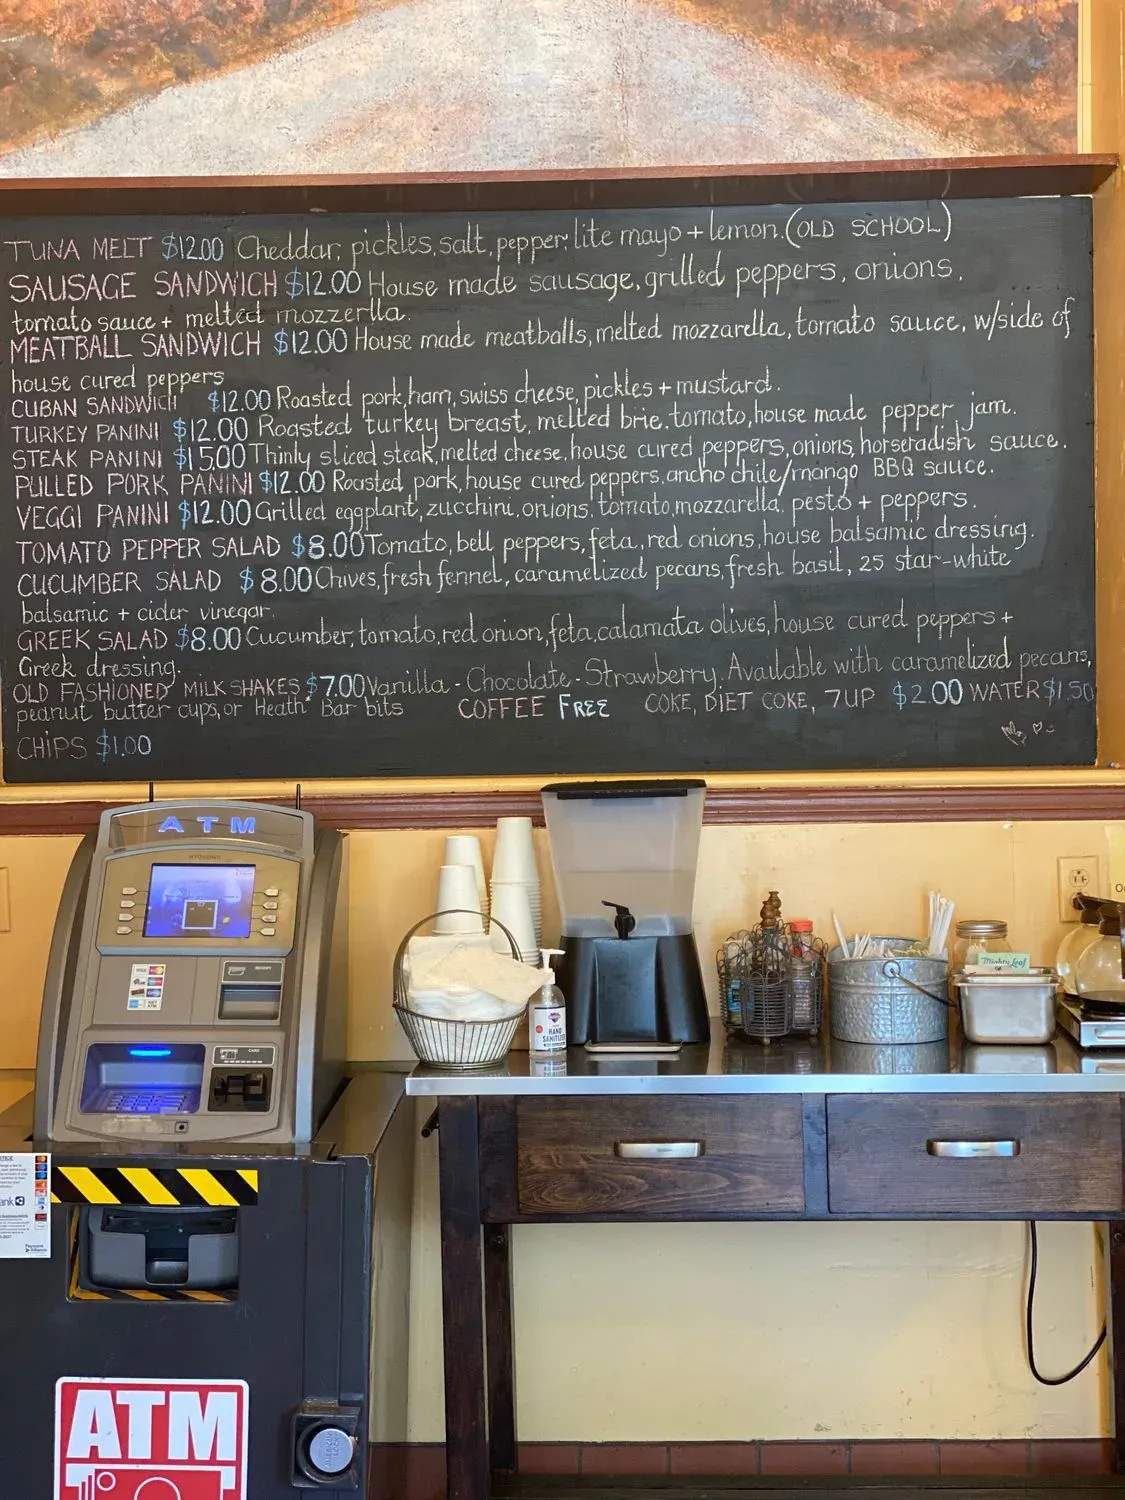 TUNA MELT $12.00 Cheddar, pickles, salt, pepper, lite mayo + lemon. (OLD SCHOOL)
SAUSAGE SANDWICH $12.00 House made sausage, grilled peppers, onions,
tomato sauce + melted mozzerlla.
MEATBALL SANDWICH $12.00 House made meatballs, melted mozzarella, tomato sauce, w/side of
house cured peppers
CUBAN SANDWICH $12.00 Roasted pork, ham, swiss cheese, pickles + mustard.
TURKEY PANINI $12.00 Roasted turkey breast, melted brie, tomato, house made pepper jam.
STEAK PANINI $15.00 Thinly sliced steak, melted cheese, house cured peppers, onions, horseradish sauce.
PULLED PORK PANINI $12.00 Roasted pork, house cured peppers, ancho chile/mango BBQ sauce.
VEGGI PANINI $12.00 Grilled eggplant, zucchini, onions, tomato, mozzarella, pesto + peppers.
TOMATO PEPPER SALAD $8.00 Tomato, bell peppers, feta, red onions, house balsamic dressing.
CUCUMBER SALAD $8.00 Chives, fresh fennel, caramelized pecans, fresh basil, 25 star-white
balsamic + cider vinegar.
GREEK SALAD $8.00 Cucumber, tomato, red onion, feta, calamata olives, house cured peppers +
Greek dressing.
OLD FASHIONED MILK SHAKES $7.00 Vanilla - Chocolate - Strawberry. Available with caramelized pecans,
peanut butter cups, or Heath Bar bits COFFEE FREE COKE, DIET COKE, 7UP $2.00 WATER $1.50
CHIPS $1.00
ATM
HAND
SANITIZER
Mighty Leaf
RECEIPT
CARD
VISA
ATM